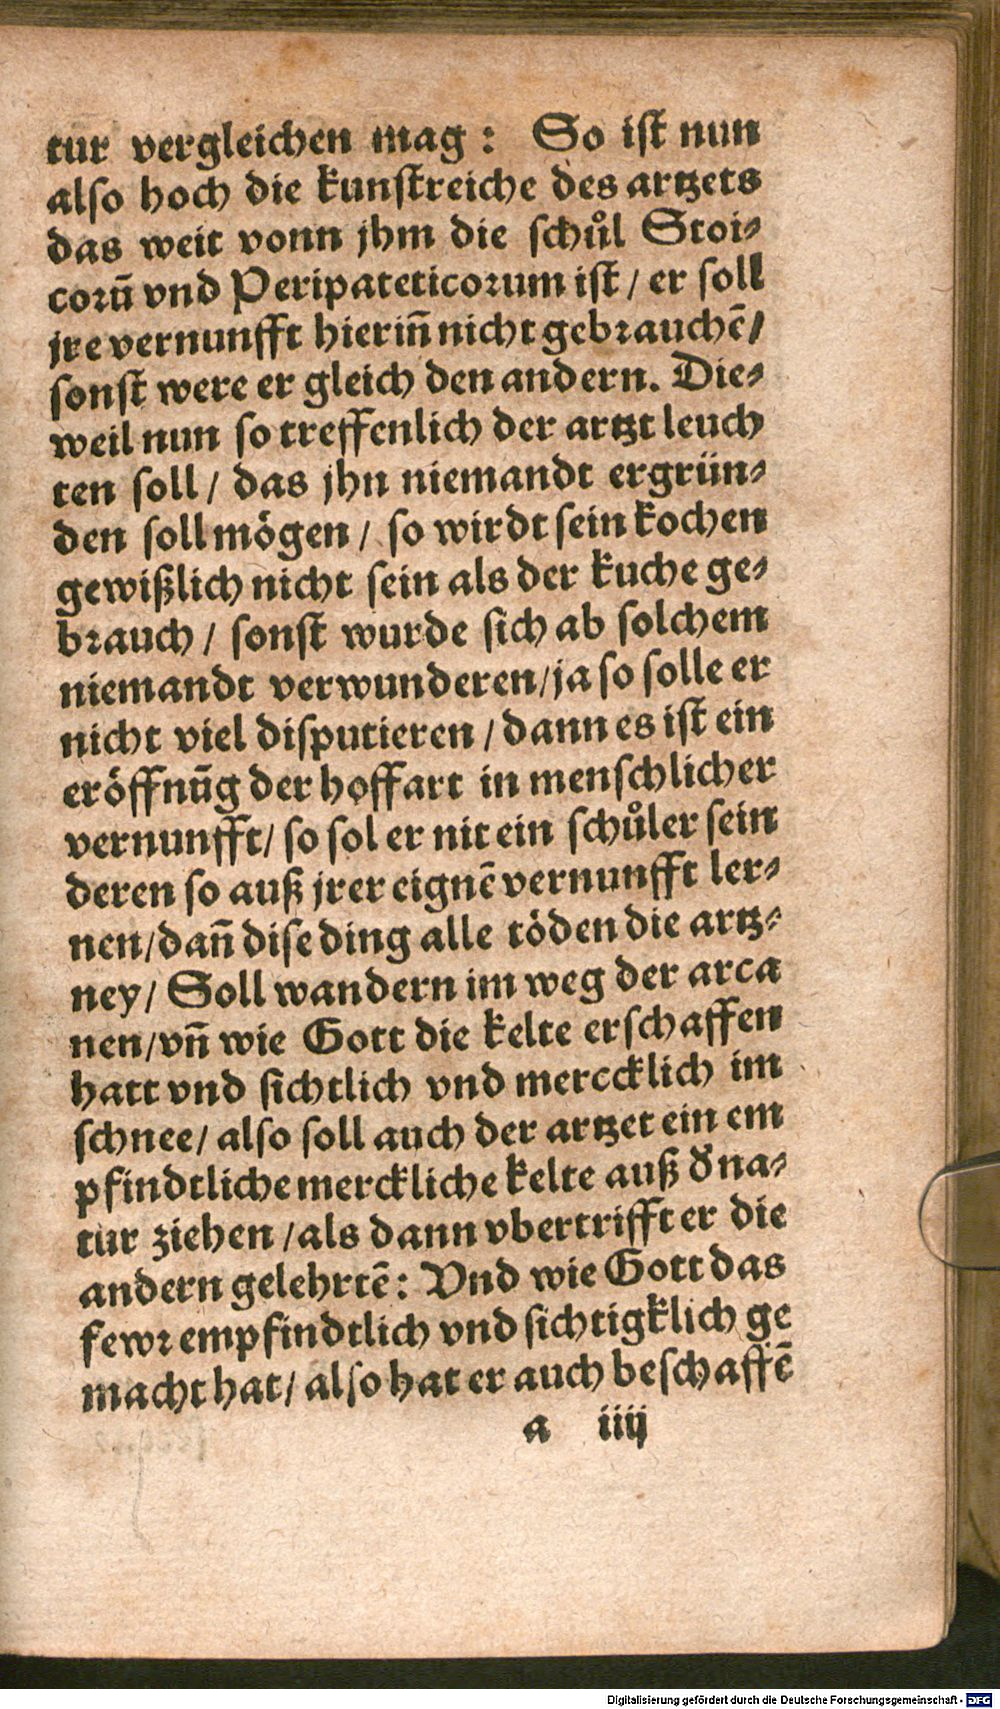 tur vergleichen mag: So ist nun
also hoch die kunstreiche des artzets
das weit vonn jhm die schůl Stoi⸗
corū vnd Peripateticorum ist / er soll
jre vernunfft hieriñ nicht gebrauchē /
sonst were er gleich den andern. Die⸗
weil nun so treffenlich der artzt leuch
ten soll / das jhn niemandt ergrün⸗
den soll mögen / so wirdt sein kochen
gewißlich nicht sein als der kuche ge⸗
brauch / sonst wurde sich ab solchem
niemandt verwunderen / ja so solle er
nicht viel disputieren / dann es ist ein
eröffnūg der hoffart in menschlicher
vernunfft / so sol er nit ein schůler sein
deren so auß jrer eignē vernunfft ler⸗
nen / dañ dise ding alle töden die artz⸗
ney / Soll wandern im weg der arca
nen / vñ wie Gott die kelte erschaffen
hatt vnd sichtlich vnd merccklich im
schnee / also soll auch der artzet ein em
pfindtliche merckliche kelte auß d̄ na⸗
tur ziehen / als dann vbertrifft er die
andern gelehrtē: Vnd wie Gott das
fewr empfindtlich vnd sichtigklich ge
macht hat / also hat er auch beschaffē
a iiij
Digitalisierung gefördert durch die Deutsche Forschungsgemeinschaft - DFG